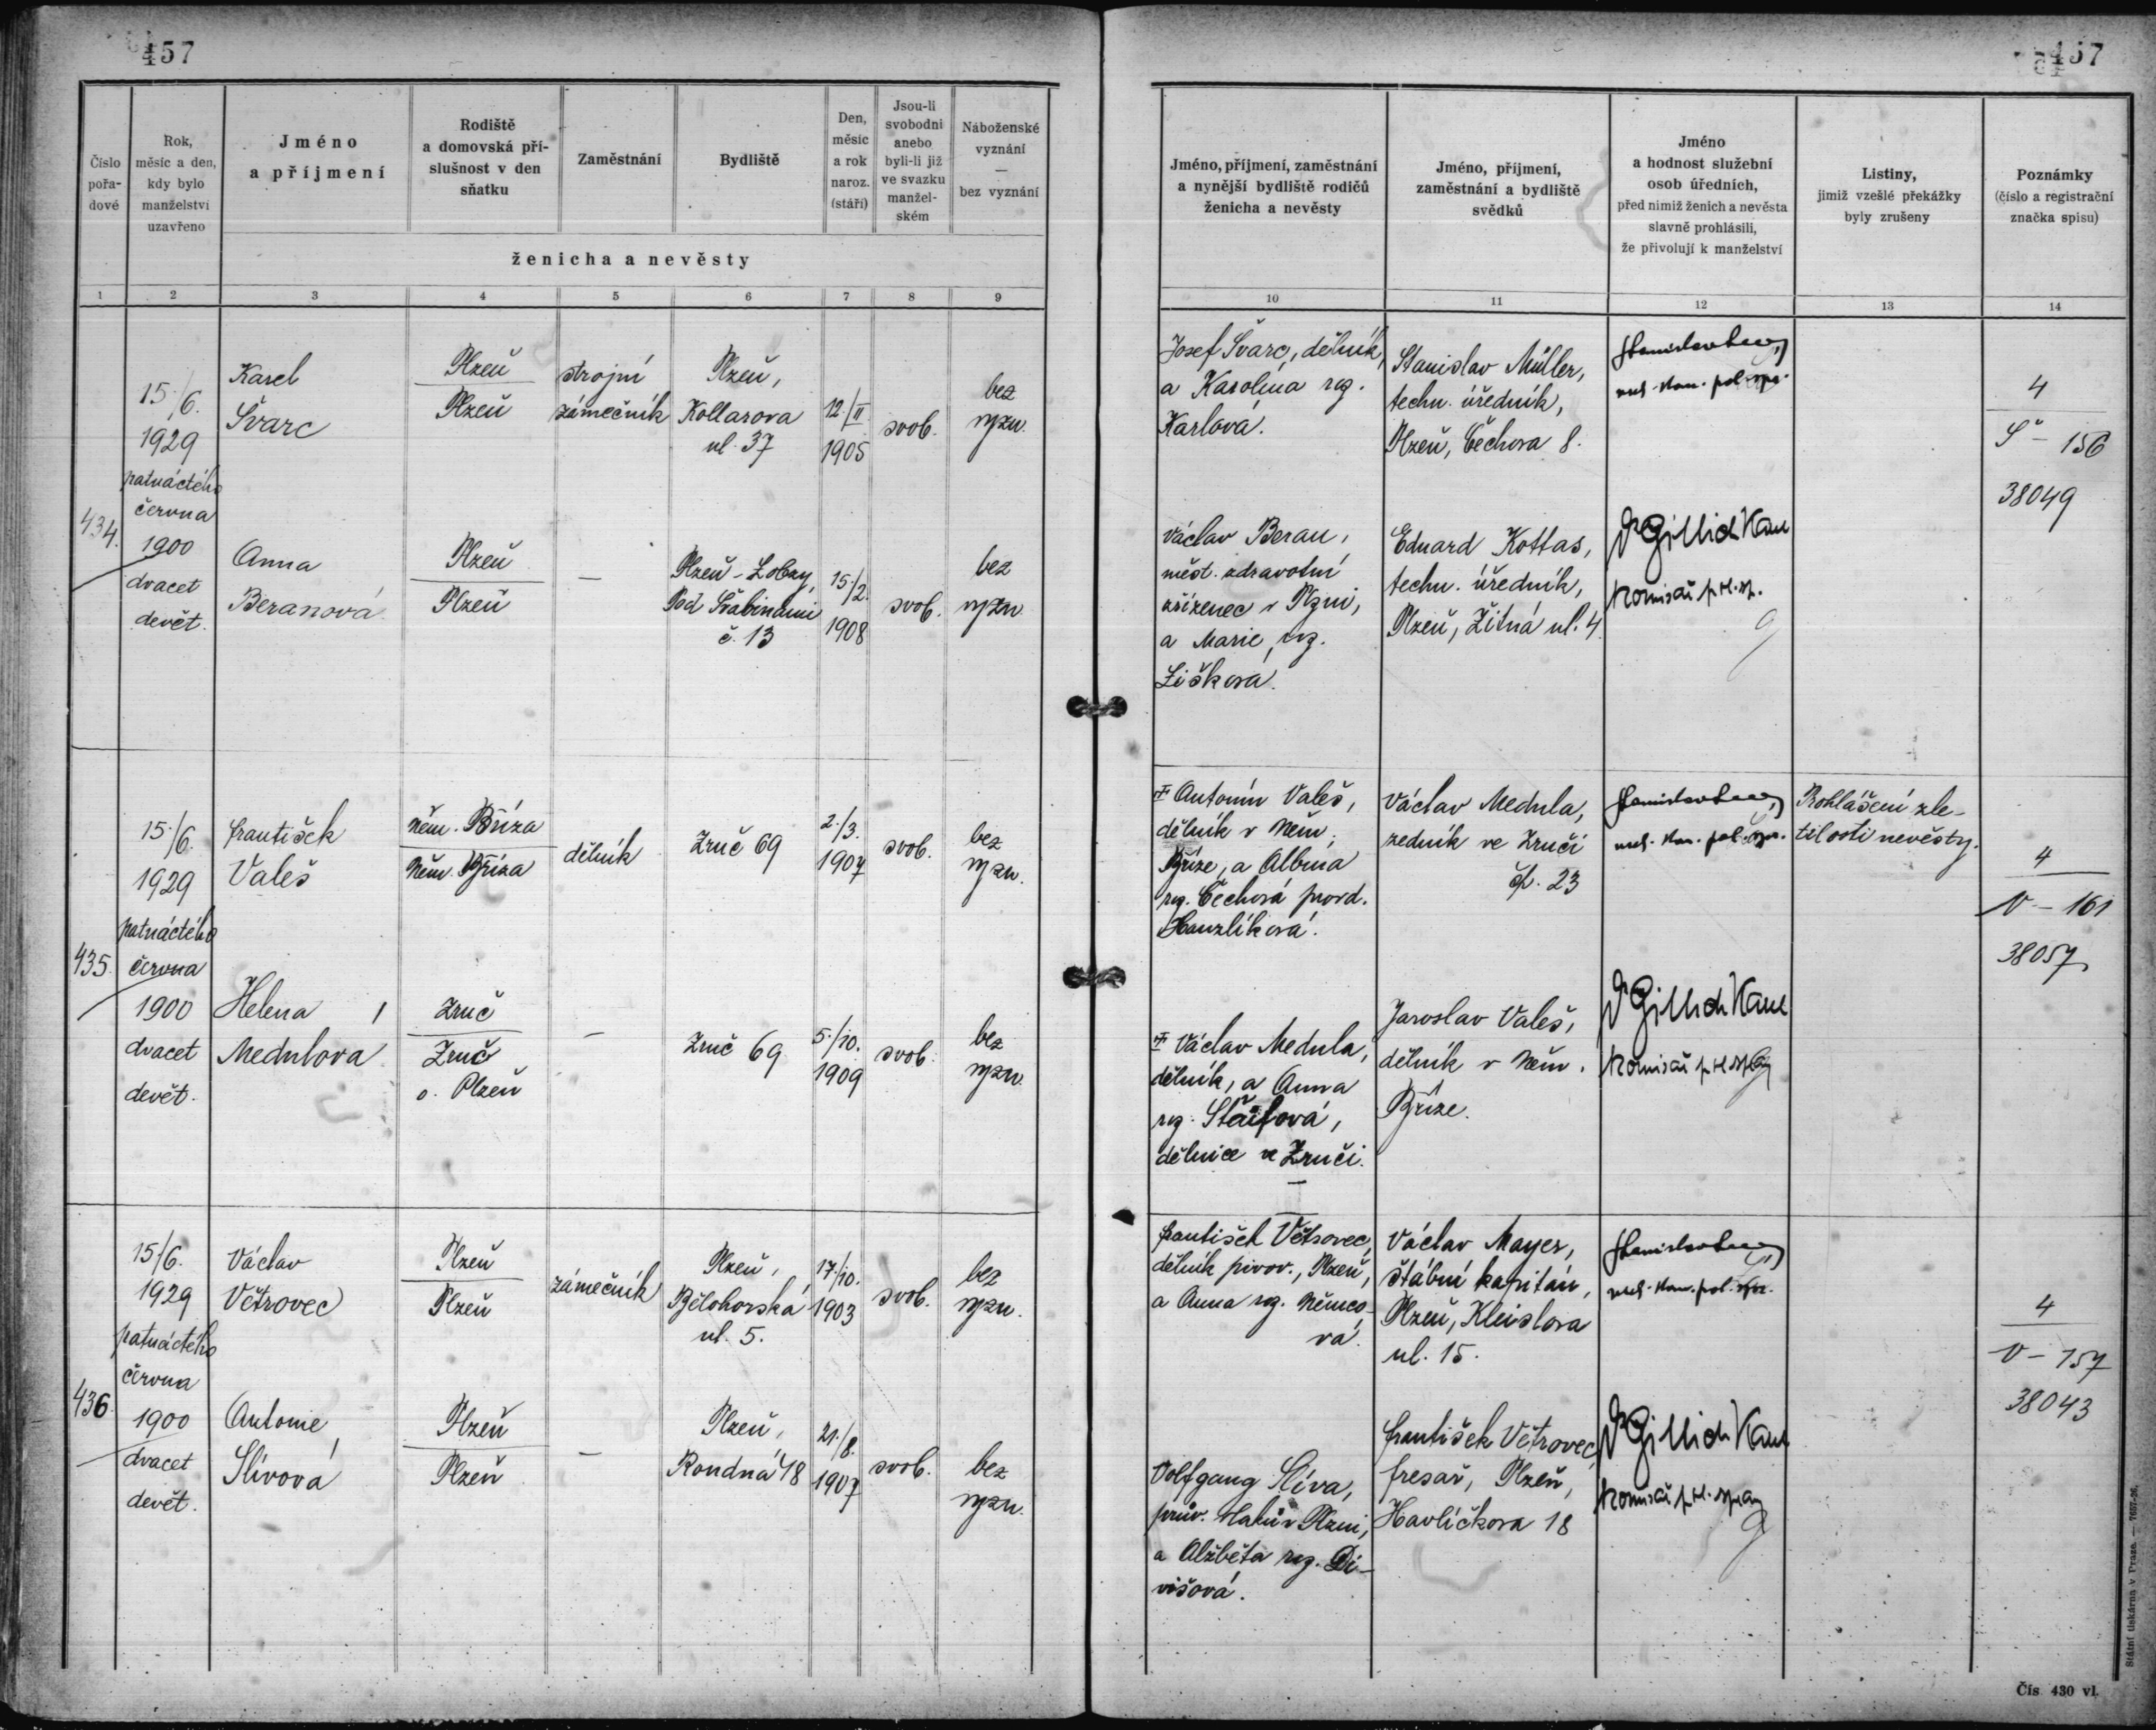 457
457
Číslo pořa-dové
Rok, měsíc a den, kdy bylo manželství uzavřeno
Jméno a příjmení
Rodiště a domovská pří-slušnost v den sňatku
Zaměstnání
Bydliště
Den, měsíc a rok naroz. (stáří)
Jsou-li svobodni anebo byli-li již ve svazku manžel-ském
Náboženské vyznání — bez vyznání
ženicha a nevěsty
Jméno, příjmení, zaměstnání a nynější bydliště rodičů ženicha a nevěsty
Jméno, příjmení, zaměstnání a bydliště svědků
Jméno a hodnost služební osob úředních, před nimiž ženich a nevěsta slavně prohlásili, že přivolují k manželství
Listiny, jimiž vzešlé překážky byly zrušeny
Poznámky (číslo a registrační značka spisu)
1 2 3 4 5 6 7 8 9 10 11 12 13 14
434.
15./6.
1929
patnáctého
června
1900
dvacet
devět.
Karel
Švarc
Plzeň
Plzeň
strojní
zámečník
Plzeň,
Kollarova
ul. 37
12./II
1905
svob.
bez
vyzn.
Josef Švarc, dělník,
a Karolina roz.
Karlová.
Stanislav Müller,
techn. úředník,
Plzeň, Čechova 8.
4
Š - 156
38049
Anna
Beranová
Plzeň
Plzeň
—
Plzeň - Lobzy,
Pod Švabinami
č. 13
15./2.
1908
svob.
bez
vyzn.
Václav Beran,
měst. zdravotní
zřízenec v Plzni,
a Marie, roz.
Liškova.
Eduard Kottas,
techn. úředník,
Plzeň, Žitná ul. 4.
435.
15./6.
1929
patnáctého
června
1900
dvacet
devět.
František
Valeš
Něm. Bříza
Něm. Bříza
dělník
Zruč 69
2./3.
1907
svob.
bez
vyzn.
Antonín Valeš,
dělník v Něm.
Bříze, a Albina
roz. Čechová provd.
Hanzlíková.
Václav Medula,
zedník ve Zruči
čp. 23
Prohlášení zle-
tilosti nevěsty.
4
V - 161
38057
Helena
Medulova
Zruč
Zruč
o. Plzeň
—
Zruč 69
5./10.
1909
svob.
bez
vyzn.
Václav Medula,
dělník, a Anna
roz.
dělnice ve Zruči.
Jaroslav Valeš,
dělník v Něm.
Bříze.
436.
15./6.
1929
patnáctého
června
1900
dvacet
devět.
Václav
Větrovec
Plzeň
Plzeň
zámečník
Plzeň,
Bělohorská
ul. 5.
17./10.
1903
svob.
bez
vyzn.
František Větrovec,
dělník pivov., Plzeň,
a Anna roz. Němco-
vá.
Václav Mayer,
štábní kapitán,
Plzeň, Kleislova
ul. 15.
4
V - 157
38043
Antonie
Slívová
Plzeň
Plzeň
—
Plzeň,
Rondná 48
21./8.
1907
svob.
bez
vyzn.
Volfgang Slíva,
v Plzni,
a Alžběta roz. Di-
višová.
František Větrovec,
fresař, Plzeň,
Havlíčkova 18
Státní tiskárna v Praze. — 7657-26.
Čís. 430 vl.